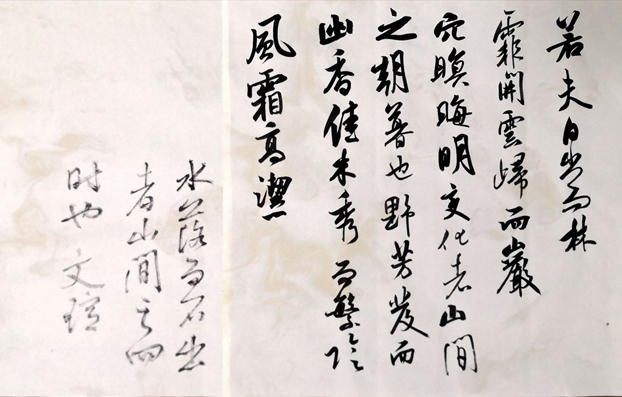 若夫日出而林
霏開雲歸而巖
穴暝晦明变化者山間
之朝暮也野芳發而
幽香佳木秀而繁陰
風霜高潔
水落而石出
者山間之四
时也 文